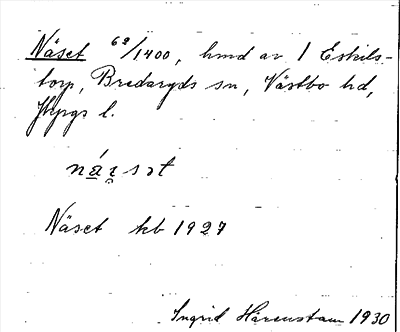 Näset 62/1400, hmd av 1 Eskils-
torp, Bredaryds sn, Västbo hd,
Jkpgs l.
Näset kb 1927
Ingrid Härenstam 1930